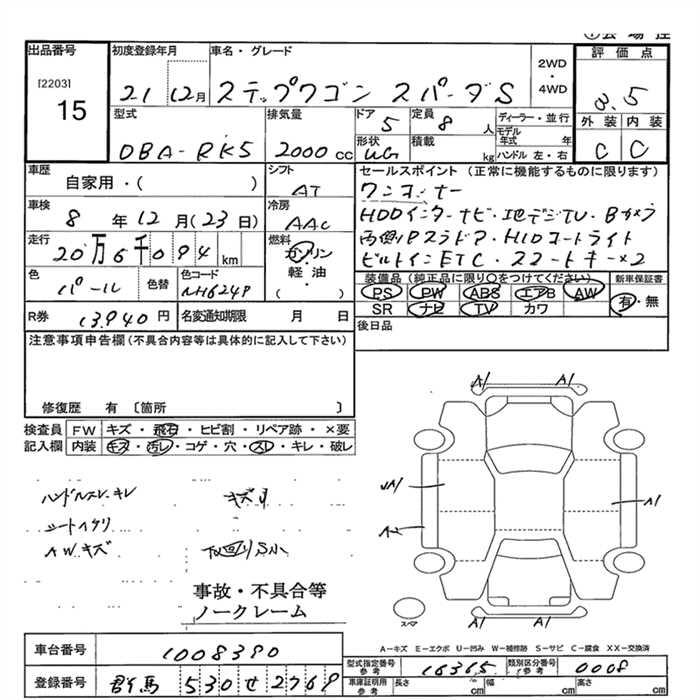 出品番号
[2203]
15
初度登録年月
21 12月
車名・グレード
ステップワゴン スパーダS
2WD
・
4WD
評価点
3.5
外装 内装
C C
型式
DBA-RK5
排気量
2000cc
ドア
5
定員
8人
形状
WG
積載
kg
ディーラー・並行
モデル年式 年
ハンドル 左・右
車歴
自家用・( )
シフト
AT
車検
8年12月(23日)
冷房
AAC
走行
20万6千094km
燃料
ガソリン
軽油
( )
色
パール
色替
色コード
NH624P
R券
13,940円
名変通知期限
月 日
セールスポイント(正常に機能するものに限ります)
ワンオーナー
HDDインターナビ・地デジTV・Bカメラ
両側Pスラドア・HIDコートライト
ビルトインETC・スマートキー×2
装備品(純正品に限り○をつけてください)
PS PW ABS エアB AW
SR ナビ TV カワ
新車保証書
有・無
後日品
注意事項申告欄(不具合内容等は具体的に記入して下さい)
修復歴 有〔箇所 〕
検査員記入欄
FW キズ・飛石・ヒビ割・リペア跡・×要
内装 キズ・汚レ・コゲ・穴・スレ・キレ・破レ
ハンドルスレ・キレ
シートヘタリ
AWキズ
キズリ
下回りS小
事故・不具合等
ノークレーム
A1 A1
A1
A2
A1
A1 A1
スマ
A-キズ E-エクボ U-凹み W-補修跡 S-サビ C-腐食 XX-交換済
車台番号
1008390
登録番号
群馬 530 せ 2768
型式指定番号
参考
16365
類別区分番号
参考
0008
車庫証明用
参考
長さ cm
幅 cm
高さ cm